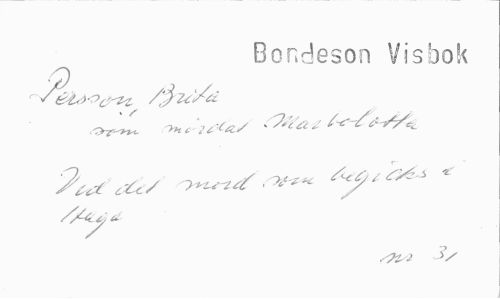 Bondeson Visbok
Persson, Brita
som mördat Marbolotta
Ved det mord som begicks i
Haga
nr 31